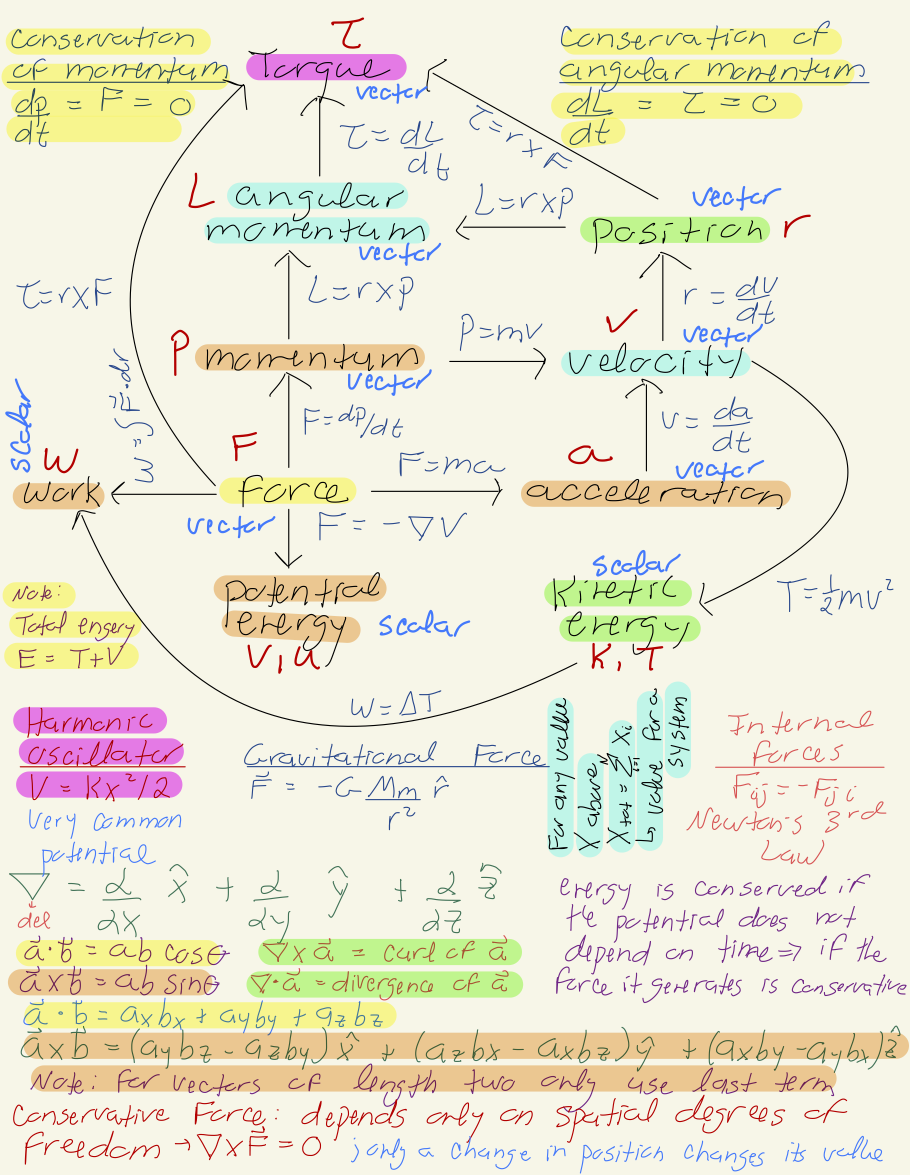 Conservation
of momentum
dp/dt = F = 0
τ
Torque
vector
Conservation of
angular momentum
dL/dt = τ = 0
τ = dL/dt
τ = r x F
L angular
momentum
vector
L = r x p
vector
position r
τ = r x F
L = r x p
r = dv/dt
P momentum
vector
P = mv
v
vector
velocity
W = ∫F⃗·dr
F = dp/dt
v = da/dt
scalar
W
work
F
force
vector
F = ma
a
vector
acceleration
F = -∇V
potential
energy
scalar
V, U
scalar
kinetic
energy
K, T
T = ½mv²
Note:
Total engery
E = T+V
W = ΔT
Harmonic
oscillator
V = Kx²/2
Very common
potential
Gravitational Force
F⃗ = -G Mm/r² r̂
For any value
X above,
X_tot = Σ_{i=1}^{N} X_i
↳ value for a
system
Internal
forces
F_ij = -F_ji
Newton's 3rd
Law
∇ = d/dx x̂ + d/dy ŷ + d/dz ẑ
del
a⃗·b⃗ = ab cosθ
∇xa⃗ = curl of a⃗
a⃗xb⃗ = ab sinθ
∇·a⃗ = divergence of a⃗
energy is conserved if
the potential does not
depend on time ⇒ if the
force it generates is conservative
a⃗·b⃗ = axbx + ayby + azbz
a⃗xb⃗ = (aybz - azby)x̂ + (azbx - axbz)ŷ + (axby - aybx)ẑ
Note: for vectors of length two only use last term
Conservative Force: depends only on spatial degrees of
freedom → ∇xF⃗ = 0 ; only a change in position changes its value